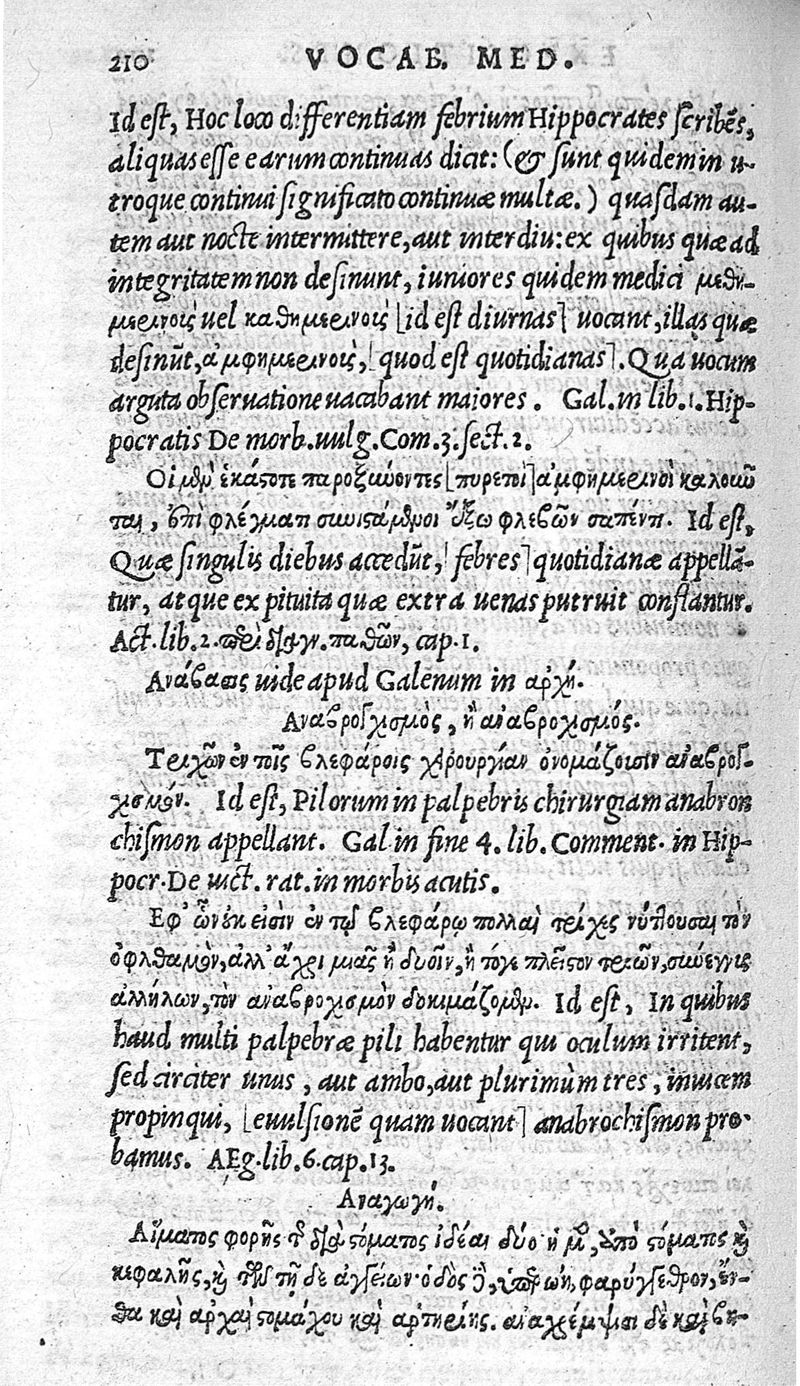 210 VOCAB. MED.
Id est, Hoc loco differentiam febrium Hippocrates scribēs,
aliquas esse earum continuas dicit: (& sunt quidem in u-
troque continui significato continuæ multæ.) quasdam au-
tem aut nocte intermittere, aut interdiu: ex quibus quæ ad
integritatem non desinunt, iuniores quidem medici μεθη-
μερινοὶς uel καθημερινοὶς [id est diurnas] uocant, illas quæ
desinūt, ἀμφημερινοὶς, [quod est quotidianas]. Qua uocum
arguta obseruatione uacabant maiores. Gal. in lib. 1. Hip-
pocratis De morb. uulg. Com. 3. sect. 2.
Οἱ μὲν ἑκάστοτε παροξιώοντες [πυρετοὶ] ἀμφημερινοὶ καλοιῶ
ται, ἐπὶ φλέγματι σωιστάμενοι ἔξω φλεβῶν σαπέντι. Id est,
Quæ singulis diebus accedūt, [febres] quotidianæ appellā-
tur, atque ex pituita quæ extra uenas putruit constantur.
Act. lib. 2. περὶ διαγν. παθῶν, cap. 1.
Ἀνάβασις uide apud Galenum in ἀρχή.
Ἀναβρογχισμὸς, ἢ ἀναβροχισμός.
Τριχῶν ἐν τοῖς βλεφάροις χειρουργίαν ὀνομάζουσιν ἀναβρογ-
χισμόν. Id est, Pilorum in palpebris chirurgiam anabron
chismon appellant. Gal. in fine 4. lib. Comment. in Hip-
pocr. De uict. rat. in morbis acutis.
Ἐφ' ὧν ἐκ εἰσὶν ἐν τῷ βλεφάρῳ πολλαὶ τρίχες νύττουσαι τὸν
ὀφλθαμὸν, ἀλλ' ἄχρι μιᾶς ἢ δυοῖν, ἢ τόγε πλεῖστον τριῶν, σωέγγις
ἀλλήλων, τὸν ἀναβροχισμὸν δοκιμάζομεν. Id est, In quibus
haud multi palpebræ pili habentur qui oculum irritent,
sed circiter unus, aut ambo, aut plurimùm tres, inuicem
propinqui, [euulsionē quam uocant] anabrochismon pro-
bamus. AEg. lib. 6. cap. 13.
Ἀναγωγή.
Αἵματος φορῆς τ̃ διὰ στόματος ἰδέαι δύο· ἡ μὲν, ἀπὸ στόματος καὶ
κεφαλῆς, καὶ τῶν τῇδε ἀγγείων· ὁδὸς δὲ, ὑπερώη, φαρύγγεθρον, ἔν-
θα καὶ ἀρχαὶ στομάχου καὶ ἀρτηρίης. ἀναχρέμψει δὲ καὶ βη-